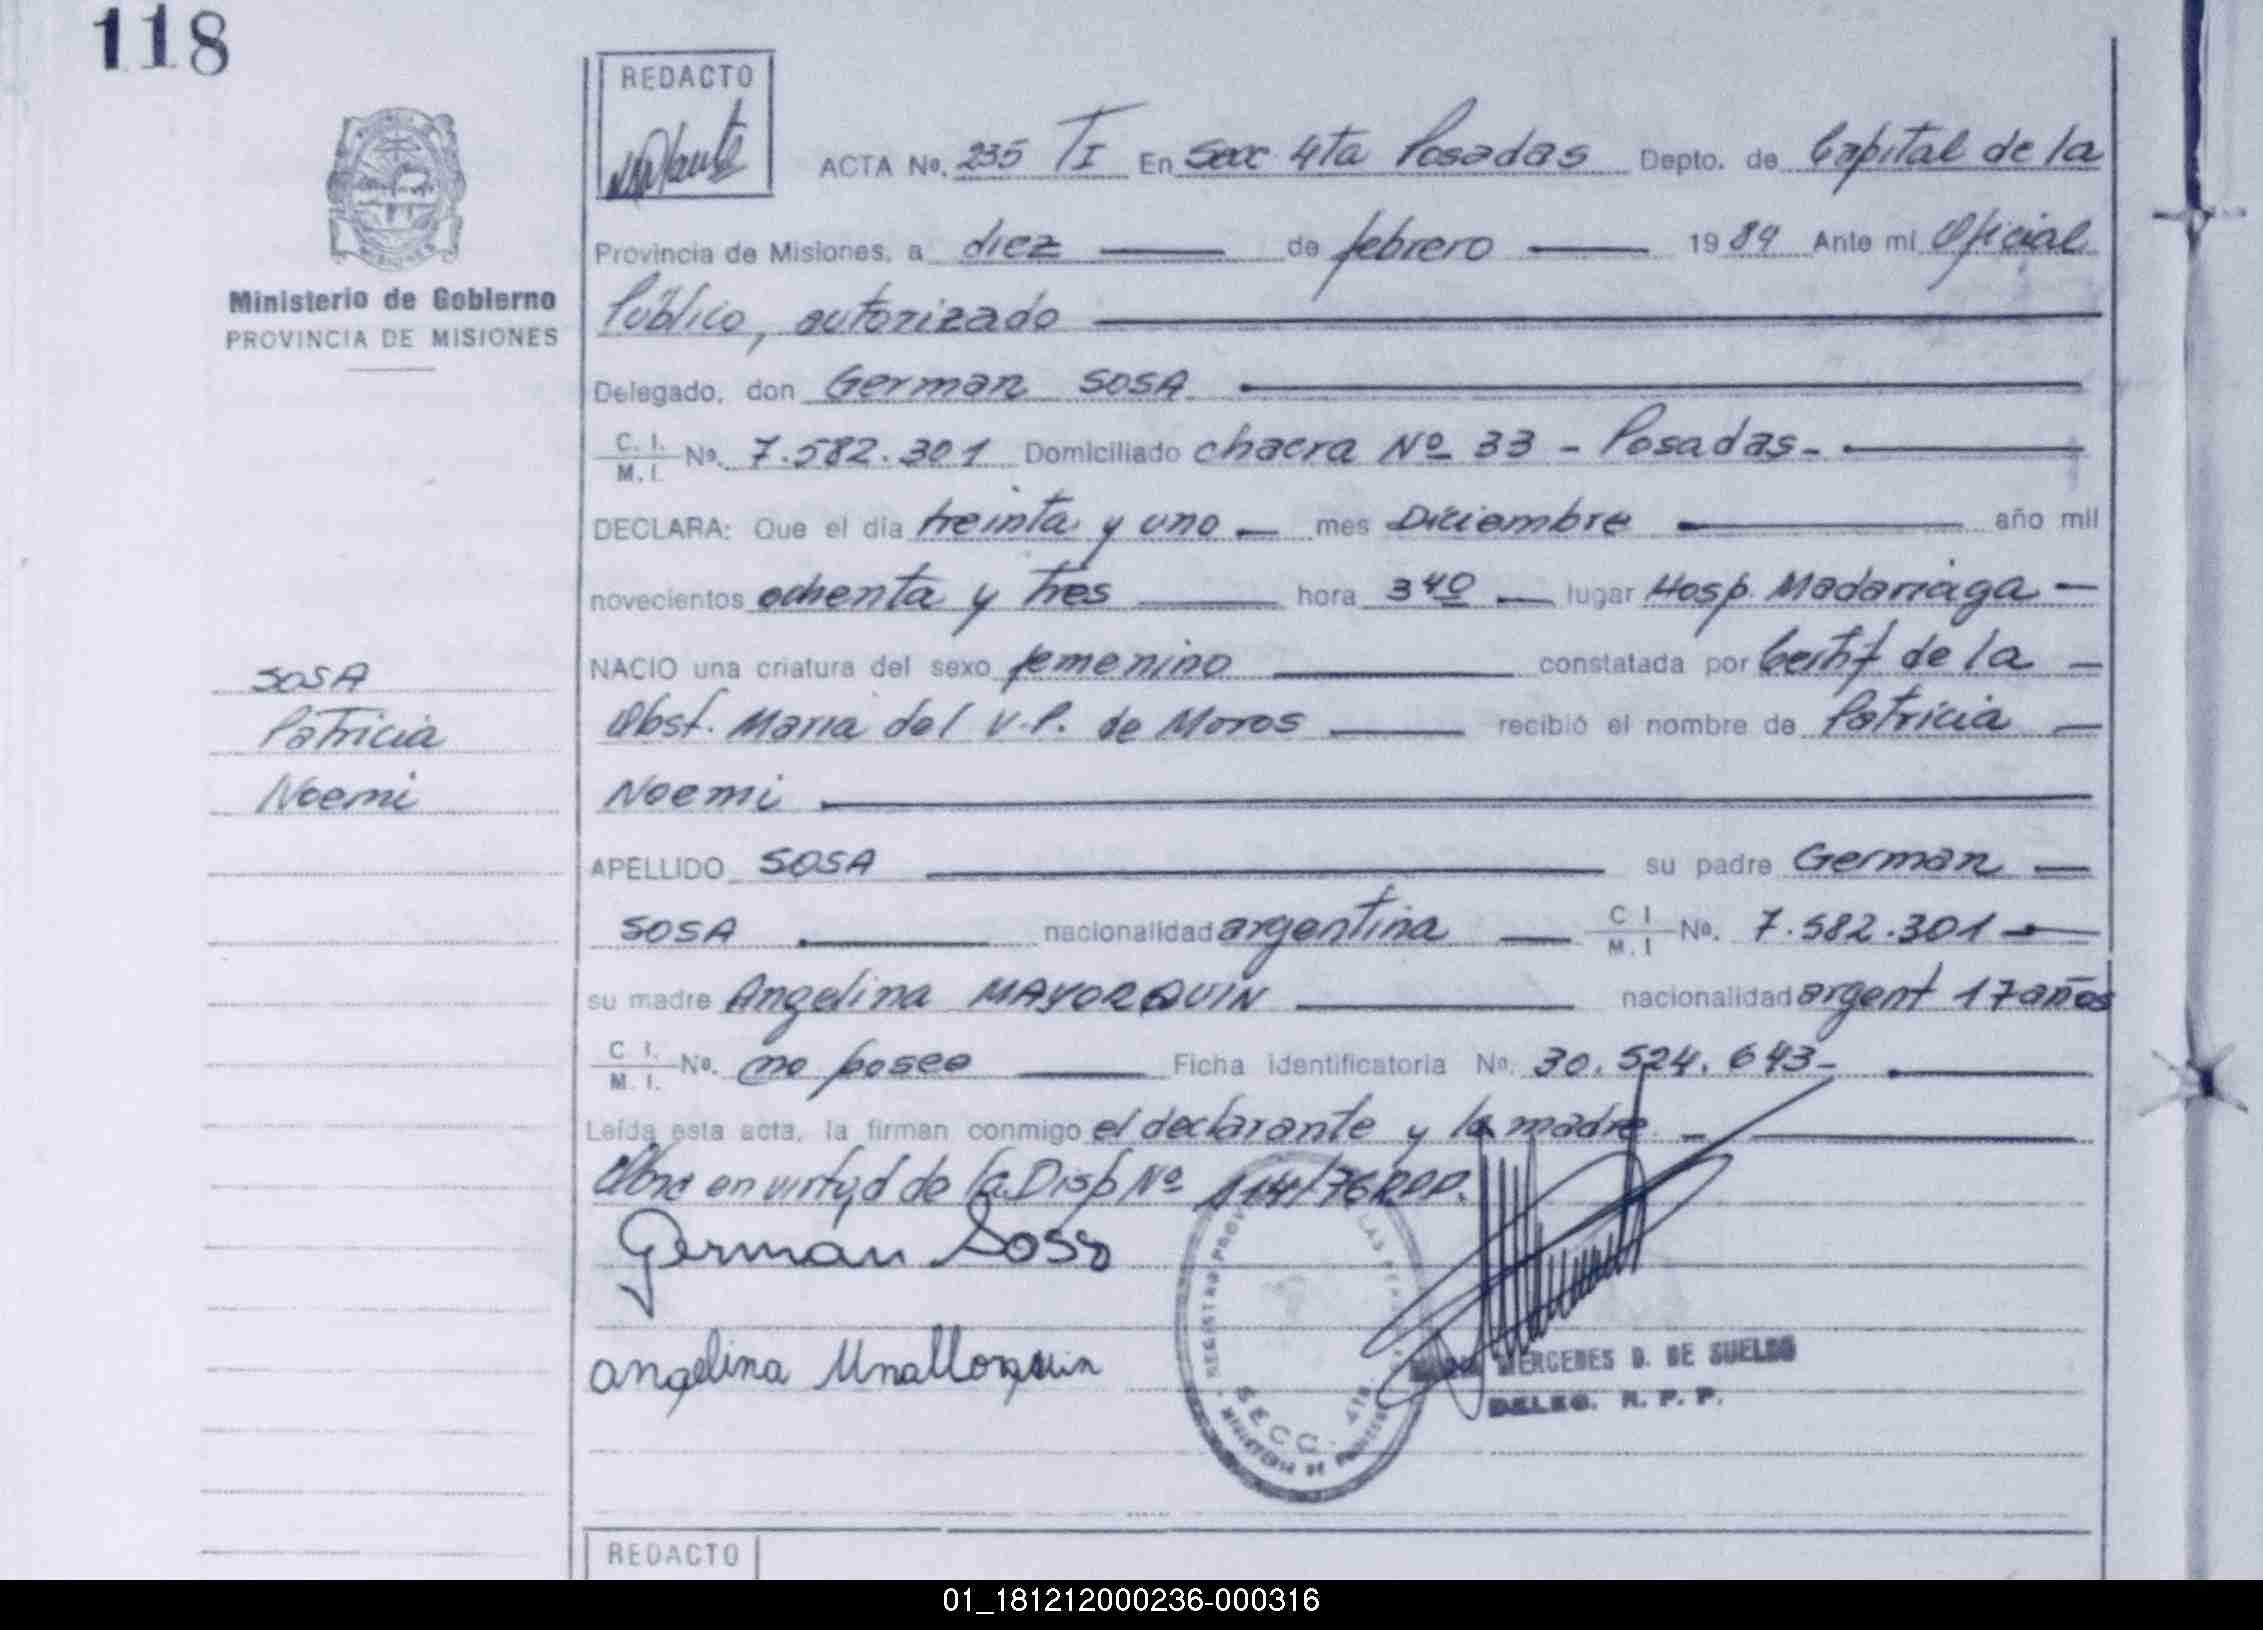 118
REDACTO
ACTA No. 235 TI En Secc 4ta Posadas Depto. de Capital de la
Provincia de Misiones, a diez de febrero 1984 Ante mi Oficial
Ministerio de Gobierno
PROVINCIA DE MISIONES
Público, autorizado
Delegado, don German SOSA
C. I. M. I. No. 7.582.301 Domiciliado chacra Nº 33 - Posadas -
DECLARA: Que el día treinta y uno mes Diciembre año mil
novecientos ochenta y tres hora 3 40 lugar Hosp. Madariaga
NACIO una criatura del sexo femenino constatada por Certif de la
SOSA
Patricia
Noemi
Obst. Maria del V.P. de Moros recibió el nombre de Patricia
Noemi
APELLIDO SOSA su padre German
SOSA nacionalidad argentina C I M. I No. 7.582.301
su madre Angelina MAYORQUIN nacionalidad argent 17 años
C I. M. I. No. no posee Ficha identificatoria No. 30.524.643-
Leída esta acta, la firman conmigo el declarante y la madre
Obra en virtud de la Disp Nº 114/76 RPP.
German Sosa
angelina Mallorquin
REGISTRO LAS
SECC. 4TA
MINISTERIO DE
MERCEDES D. DE SUELDO
DELEG. R. P. P.
REDACTO
01_181212000236-000316